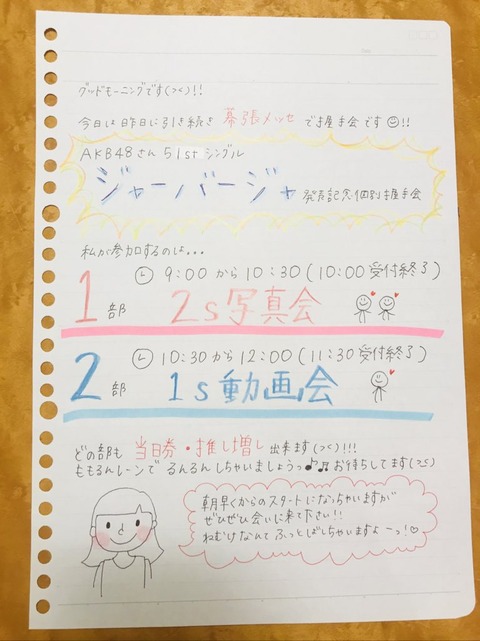 グッドモーニングです(つく)!!
今日は昨日に引き続き 幕張メッセ で握手会です!!
AKB48さん 51stシングル
ジャーバージャ 発売記念個別握手会
私が参加するのは...
1部 9:00から10:30(10:00受付終了)
2s写真会
2部 10:30から12:00(11:30受付終了)
1s動画会
どの部も 当日券・推し増し 出来ます(つく)!!!
ももるんレーンで るんるんしちゃいましょうっ♪♬ お待ちしてます(つく)
朝早くからのスタートになっちゃいますが
ぜひぜひ会いに来て下さい!!
ねむけなんて ふっとばしちゃいますよーっ!♡